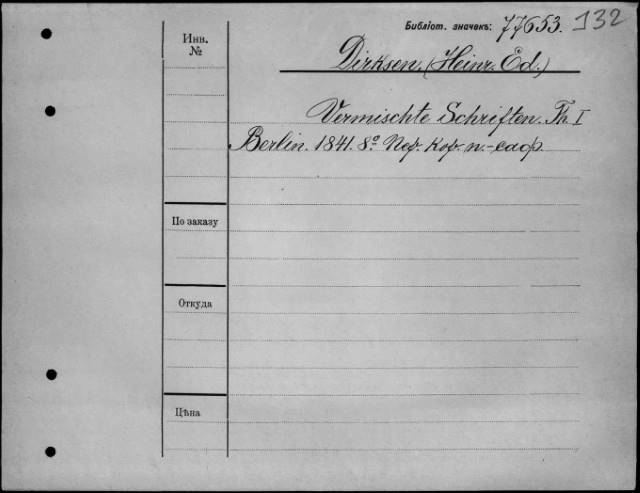 Библіот. значекъ: 77653. 132
Инв.
№
Dirksen, (Heinr. Ed.)
Vermischte Schriften. Th I
Berlin. 1841. 8º
По заказу
Откуда
Цѣна